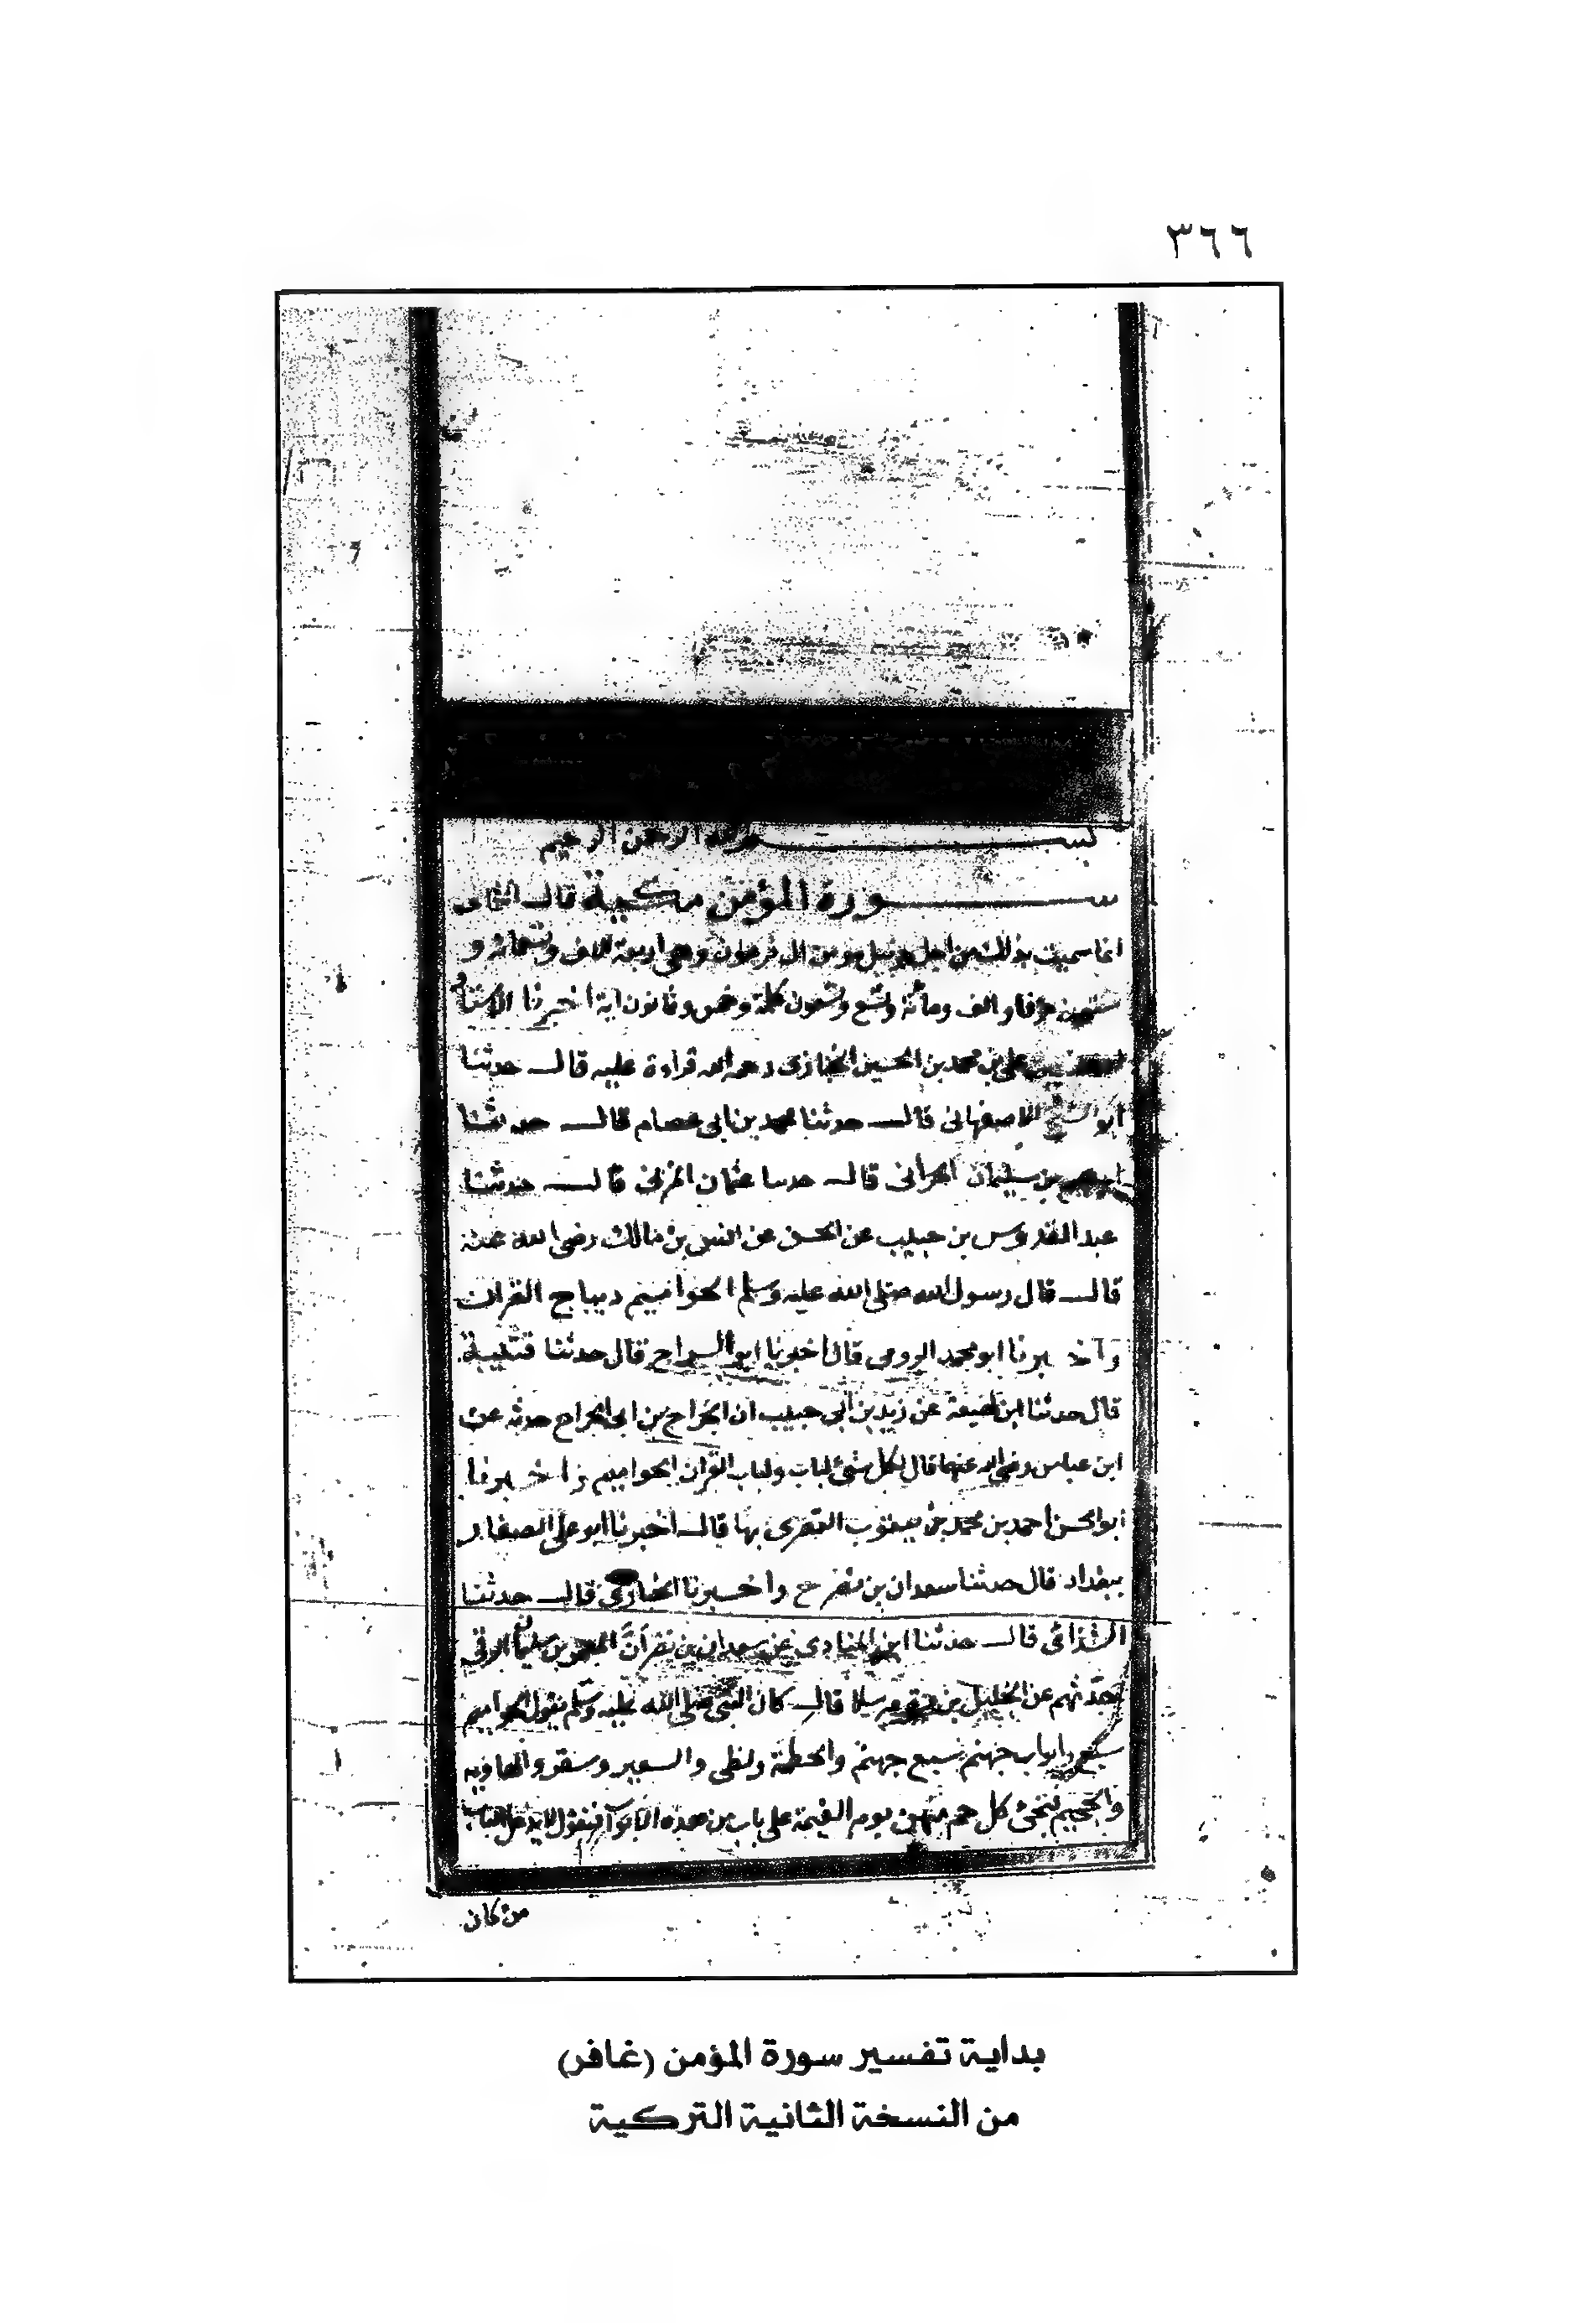 ٣٦٦
بسم الله الرحمن الرحيم
سورة المؤمن مكية قال
انما سميت بذلك من اجل حزبيل مومن ال فرعون وهي اربعة الاف وتسعمائة و
ستون حرفا والف ومائة وتسع وتسعون كلمة وخمس وثمانون اية اخبرنا الاستاذ
علي بن محمد بن الحسين الخبازى رحمه الله قراءة عليه قال حدثنا
ابو الشيخ الاصفهانى قال حدثنا محمد بن ابى عصام قال حدثنا
ابرهيم بن سليمان الحرانى قال حدسا عثمان المزنى قال حدثنا
عبد القدوس بن حبيب عن الحسن عن انس بن مالك رضى الله عنه
قال قال رسول الله صلى الله عليه وسلم الحواميم ديباج القران
واخبرنا ابو محمد الرومى قال اخبرنا ابو السراج قال حدثنا قتيبة
قال حدثنا ابن لهيعة عن زيد بن ابى حبيب ان الجراح بن ابى الجراح حدثه عن
ابن عباس رضى الله عنهما قال لكل شئ لباب ولباب القران الحواميم واخبرنا
ابو الحسن احمد بن محمد بن يعقوب القصرى بها قال اخبرنا ابو على الصفار
ببغداد قال حدثنا سعدان بن نصر ح واخبرنا الخبازى قال حدثنا
الشذائى قال حدثنا ابن المنادى عن سعدان بن نصر انّ المعمر بن سليمان الرقى
حدّثهم عن الخليل بن مرة مرسلا قال كان النبى صلى الله عليه وسلم يقول الحواميم
سبع وابواب جهنم سبع جهنم والحطمة ولظى والسعير وسقر والهاوية
والجحيم تجئ كل حم منهن يوم القيمة على باب من هذه الابواب فتقول لا يدخل الباب
من كان
بداية تفسير سورة المؤمن (غافر)
من النسخة الثانية التركية